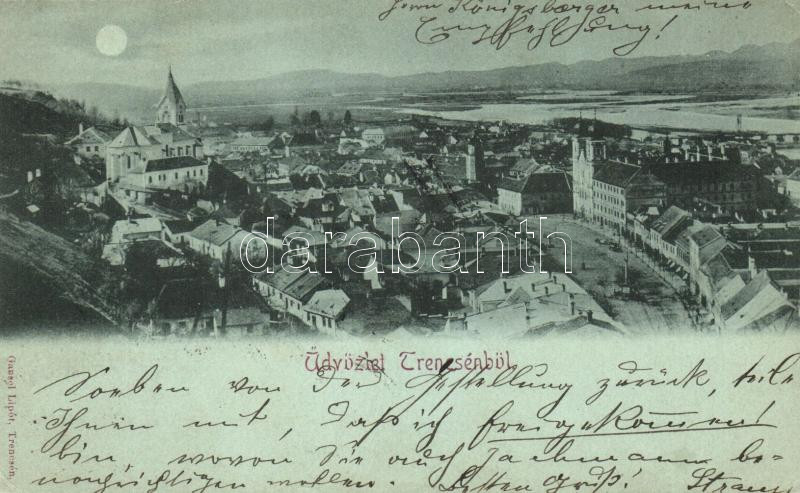 Herrn Königsberger meine
Empfehlung!
darabanth
Üdvözlet Trencsénböl.
Gansel Lipót, Trencsén.
Soeben von der Gestellung zurück, teile
Ihnen mit, daß ich freigekommen!
bin, wovon Sie auch Jachmann be-
nachrichtigen wollen. Besten Gruß!